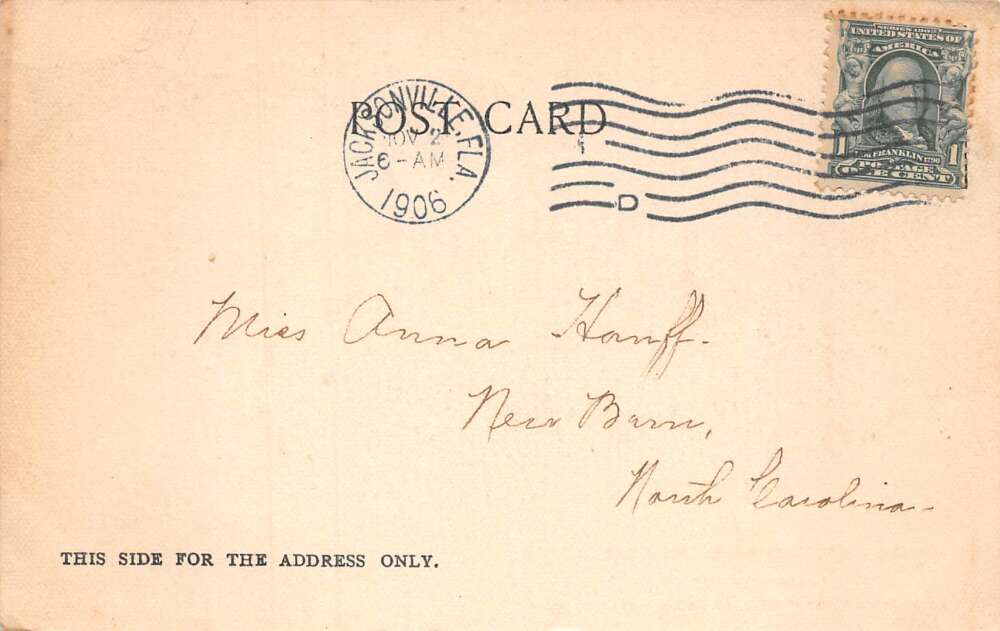 SERIES 1902
UNITED STATES OF
AMERICA
FRANKLIN 1790
1 1
POSTAGE
ONE CENT
POST CARD
JACKSONVILLE, FLA.
NOV 2
6-AM
1906
D
Miss Anna Hanff.
New Burn,
North Carolina-
THIS SIDE FOR THE ADDRESS ONLY.